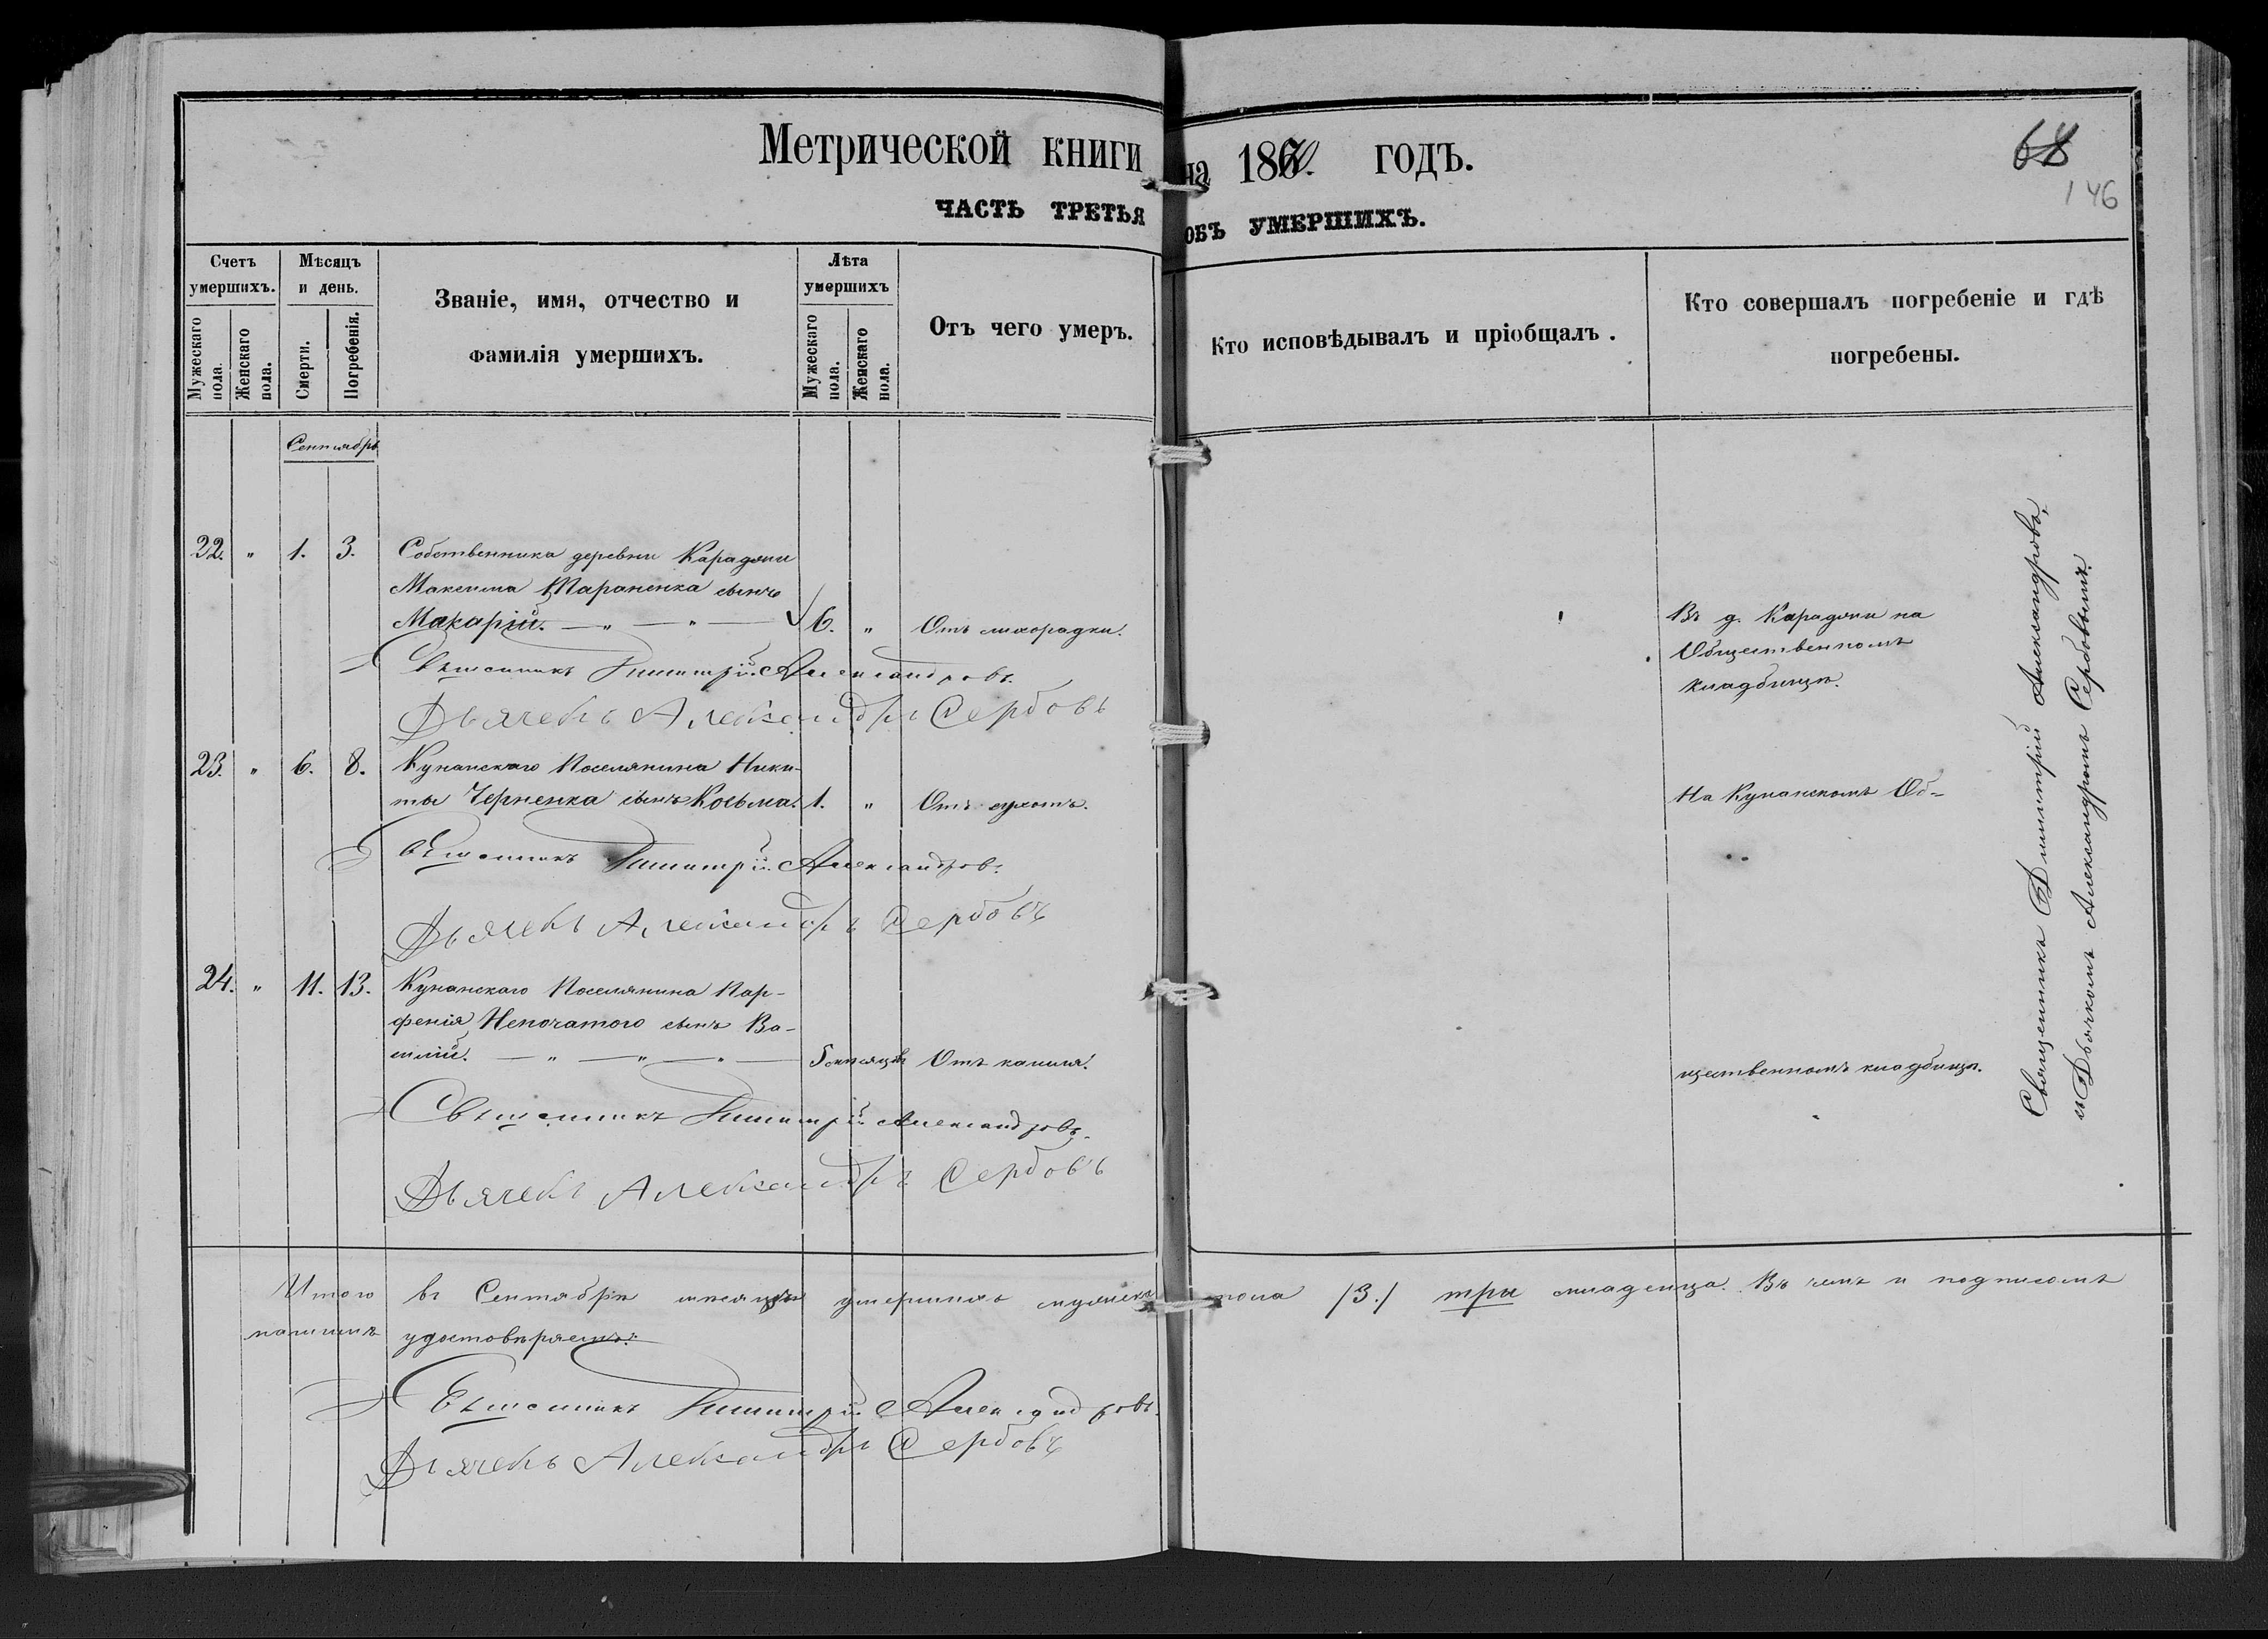 Метрической книги на 1870. годъ.
68
146
ЧАСТЬ ТРЕТЬЯ ОБЪ УМЕРШИХЪ.
Счетъ умершихъ.
Мужескаго пола.
Женскаго пола.
Мѣсяцъ и день.
Смерти.
Погребенія.
Званіе, имя, отчество и
фамилія умершихъ.
Лѣта умершихъ
Мужескаго пола.
Женскаго пола.
Отъ чего умеръ.
Кто исповѣдывалъ и пріобщалъ.
Кто совершалъ погребеніе и гдѣ
погребены.
Сентябрь
22. " 1. 3. Собственника деревни
Максима Тараненка сынъ
Макарій. — " — " — 6. " Отъ лихорадки.
Въ д. на
Общественномъ
кладбищѣ.
Священникъ Димитрій Александровъ.
Дьячекъ Александръ Сербовъ
23. " 6. 8. Поселянина Ники-
ты Черненка сынъ Косьма. 1. " Отъ сухотъ.
На Об-
Священникъ Димитрій Александровъ.
Дьячекъ Александръ Сербовъ
24. " 11. 13. Поселянина Пар-
фенія Непочатого сынъ Ва-
силій. — " — " — " — 5 мѣсяцевъ Отъ кашля.
щественномъ кладбищѣ.
Священникъ Димитрій Александровъ.
Дьячекъ Александръ Сербовъ
Священникъ Димитрій Александровъ,
съ Дьячкомъ Александромъ Сербовымъ.
Итого въ Сентябрѣ мѣсяцѣ умершихъ мужеска пола /3./ три младенца. Въ чемъ и подписомъ
нашимъ удостовѣряемъ:
Священникъ Димитрій Александровъ.
Дьячекъ Александръ Сербовъ